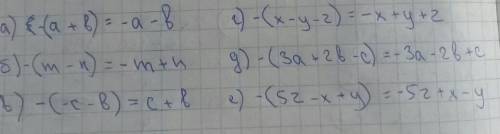 а) -(a + b) = -a - b
б) -(m - n) = -m + n
в) -(-c - b) = c + b
г) -(x - y - z) = -x + y + z
д) -(3a + 2b - c) = -3a - 2b + c
е) -(5z - x + y) = -5z + x - y